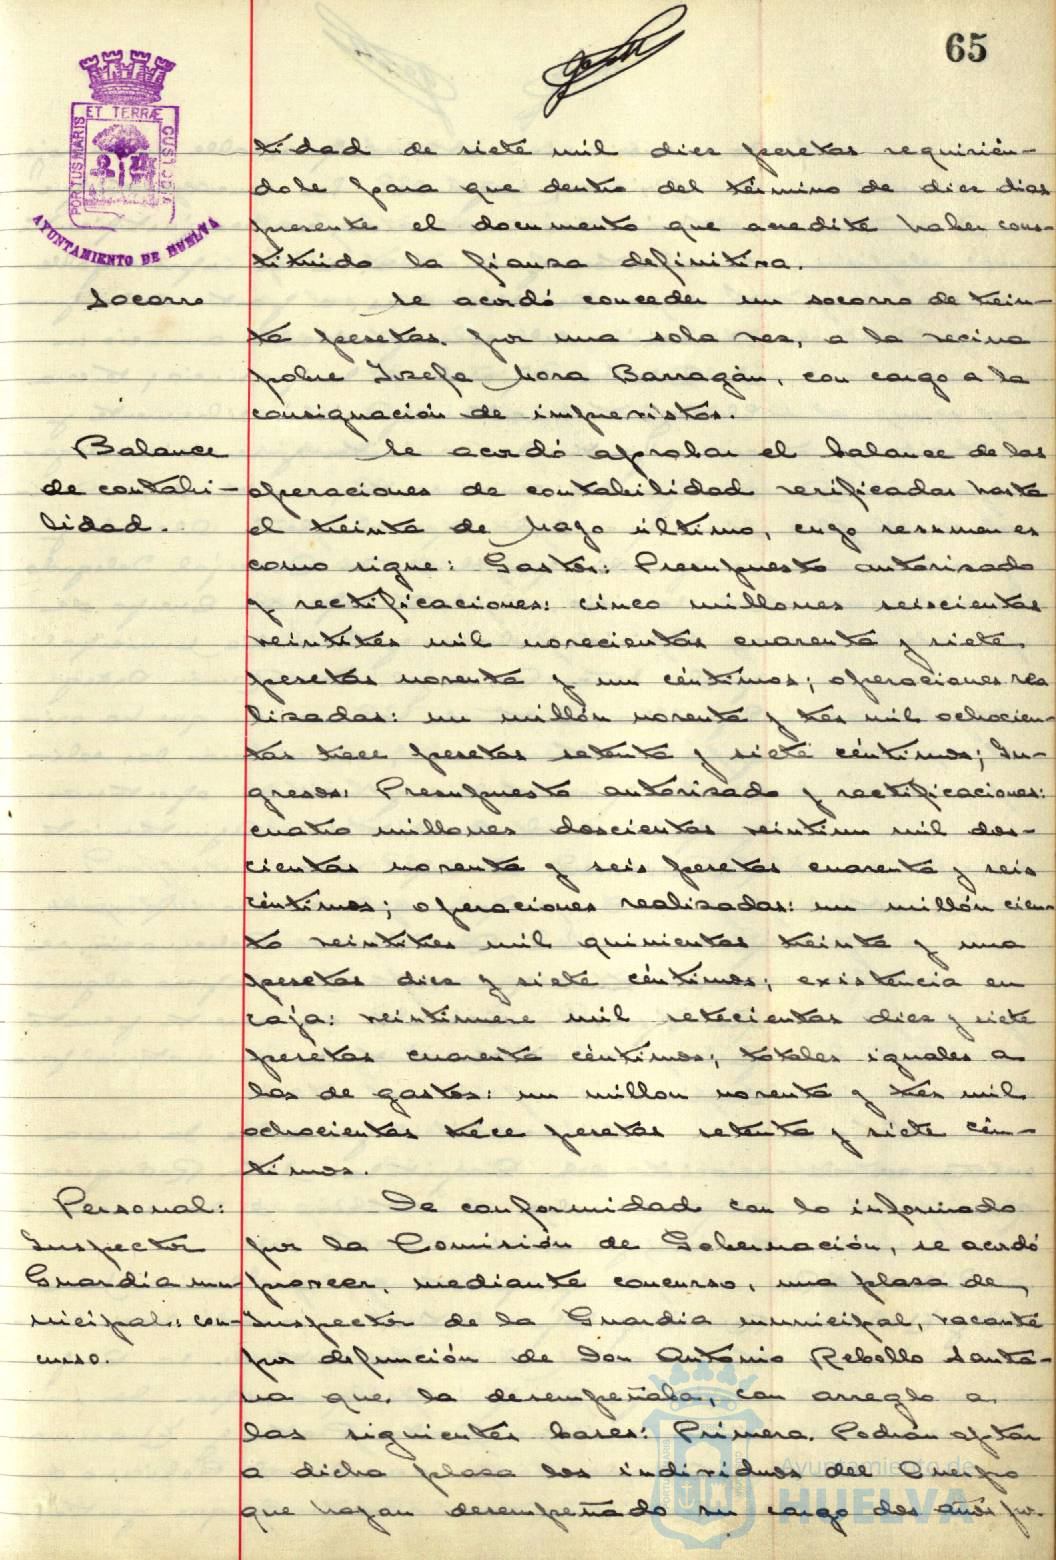 65
ET TERRÆ
PORTUS MARIS
CUSTODIA
AYUNTAMIENTO DE HUELVA
tidad de siete mil diez pesetas requirién-
dole para que dentro del término de diez dias
presente el documento que acredite haber cons-
tituido la fianza definitiva.
Socorro
Se acordó conceder un socorro de trein-
ta pesetas, por una sola vez, a la vecina
pobre Josefa Mora Barragán, con cargo a la
consignación de imprevistos.
Balance
de contabi-
lidad.
Se acordó aprobar el balance de las
operaciones de contabilidad verificadas hasta
el treinta de Mayo último, cuyo resumen es
como sigue: Gastos: Presupuesto autorizado
y rectificaciones: cinco millones seiscientas
veintitres mil novecientas cuarenta y siete
pesetas noventa y un céntimos; operaciones rea
lizadas: un millón noventa y tres mil ochocien-
tas trece pesetas setenta y siete céntimos; In-
gresos: Presupuesto autorizado y rectificaciones:
cuatro millones doscientas veintiun mil dos-
cientas noventa y seis pesetas cuarenta y seis
céntimos; operaciones realizadas: un millón cien-
to veintitres mil quinientas treinta y una
pesetas diez y siete céntimos; existencia en
caja: veintinueve mil setecientas diez y siete
pesetas cuarenta céntimos; totales iguales a
las de gastos: un millon noventa y tres mil
ochocientas trece pesetas setenta y siete cén-
timos.
Personal:
Inspector
Guardia mu-
nicipal: con-
curso.
De conformidad con lo informado
por la Comisión de Gobernación, se acordó
proveer, mediante concurso, una plaza de
Inspector de la Guardia municipal, vacante
por defunción de Don Antonio Rebollo Santa-
na que la desempeñaba, con arreglo a
las siguientes bases: Primera. Podrán optar
a dicha plaza los individuos del Cuerpo
que hayan desempeñado su cargo dos años por
Ayuntamiento de
HUELVA